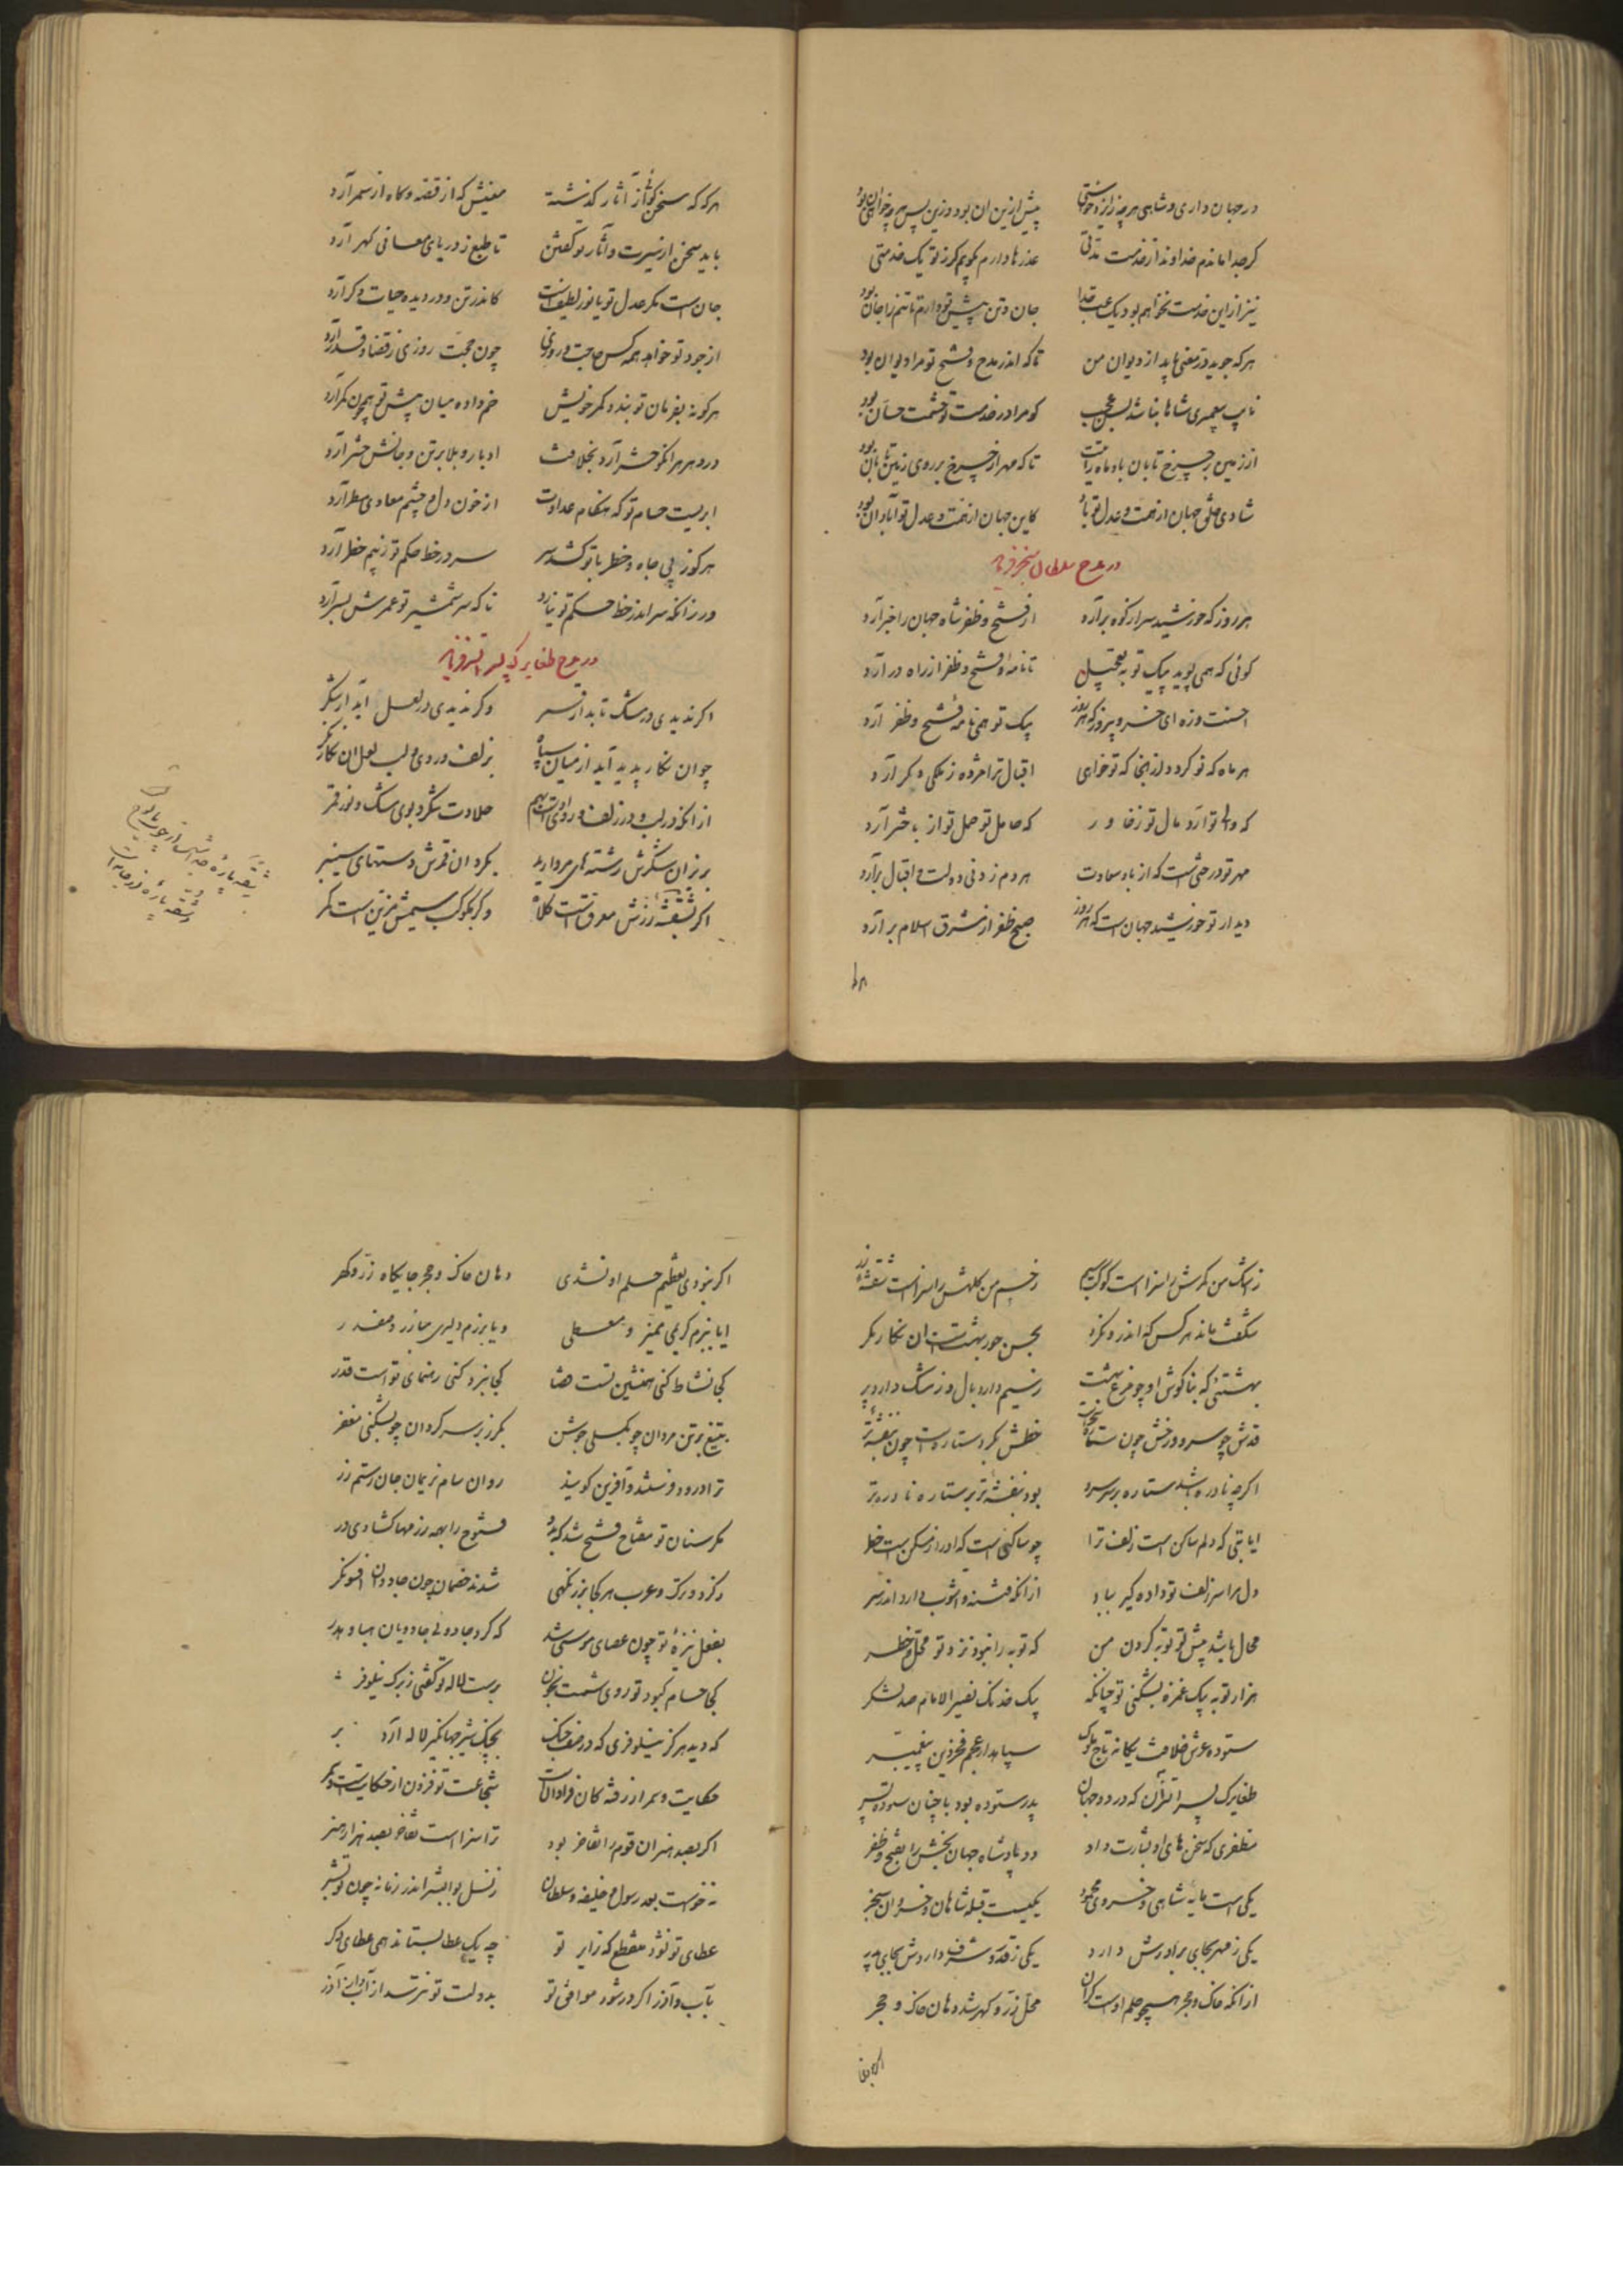 در جهان داری و شاهی هرچه زایزد خواستی پیش ازین آن بود و زین پس هرچه خواهی آن بود
گر جدا ماندم خداوندا ز خدمت مدتی عذرها دارم نگویم کز تو یک خدمتی
نیز ازاین خدمت نخواهم بود یک ساعت جدا جان و تن پیش تو دارم تا تنم را جان بود
هرکه جوید در معنی یابد از دیوان من تا که اندر مدح و فتح تو مرا دیوان بود
نایب پیغمبری شاها نباشد بس عجب کو مرا در خدمت و حشمت حسان بود
از زمین بر چرخ تابان باد ماه رایتت تا که مهر از چرخ بر روی زمین تابان بود
شادی خلق جهان از نعمت و عدل تو باد کاین جهان از نعمت و عدل تو آبادان بود
در مدح سلطان سنجر فرماید
هر روز که خورشید سر از کوه برآرد از فتح و ظفر شاه جهان را خبر آرد
گوئی که همی پوید پیک تو به تعجیل تا نامه فتح و ظفر از راه در آرد
احسنت و زه ای خسرو پیروز که هر روز پیک تو همی نامه فتح و ظفر آرد
هر ماه که نو گردد از آنجا که تو خواهی اقبال ترا مژده ز ملکی دگر آرد
که والی تو آرد مال تو ز خاور که حامل تو حمل تو از باختر آرد
مهر تو درختی است که از باد سعادت هر دم زدنی دولت و اقبال برآرد
دیدار تو خورشید جهان است که هر روز صبح ظفر از مشرق اسلام برآرد
هرکه که سخن گوئی از آثار گذشته معنیش که از قصه و گاه از سمر آرد
باید سخن از سیرت و آثار تو گفتن تا طبع ز دریای معانی گهر آرد
جان است مگر عدل تو یا نور لطیف است کاندر تن و در دیده حیات و دگر آرد
از جود تو خواهد همه کس حاجت و روزی چون حجت روزی ز قضا و قدر آرد
هرکو به بفرمان تو بندد کمر خویش خم داده میان پیش تو همچون کمر آرد
در دهر هر آنکو حشر آرد بخلافت ادبار و بلا بر تن و جانش حشر آرد
ابریست حسام تو که هنگام عداوت از خون دل و چشم معادی مطر آرد
هرکو ز پی جاه و خطر با تو کشد سر سر در خط حکم تو ز بیم خطر آرد
ور زانکه سر اندر خط حکم تو نیارد تا که سر شمشیر تو عمرش بسر آرد
در مدح طغایرک پسر الیزن فرماید
اگر ندیدی در مشک تابدار قمر وگر ندیدی در لعل آبدار شکر
چو آن نگار پدید آید از میان سپاه بزلف و روی و لب لعل آن نگار نگر
از آنکه در لب و در زلف و روی او است بهم حلاوت شکر و بوی مشک و نور قمر
بزیر آن شکرش رشته های مروارید بگرد آن قمرش دستهای سنبر
اگر بنفشه زرش معرق است کلاه وگر بکوکب سیمش مزین است کمر
ز اشک من کمرش را سزا است کوکب سیم ز چشم من کلهش را سزا است نقشه زر
شگفت ماند هر کس که اندر و نگرد بحسن حور بهشت است آن نگار مگر
بهشتئی که بناگوش او چو مرغ بهشت ز سیم دارد بال و ز مشک دارد پر
قدش چو سرو و رخش چون ستاره تابان خطش بگرد ستاره است چون بنفشه تر
اگرچه نادره باشد ستاره بر سر سرو بود بنفشه تر بر ستاره نادره تر
ایا بتی که دلم ساکن است زلف ترا چو ساکنی است که او را ز مسکن است خطر
دل مرا سر زلف تو داده گیر بباد از آنکه فتنه و آشوب دارد اندر سر
محال باشد پیش تو توبه کردن من که توبه را نبود نزد تو محل و خطر
هزار توبه به یک غمزه بشکنی تو چنانکه بیک خدنگ نصیر الانام صد لشکر
ستوده عرش خلافت یگانه تاج ملوک سپاهدار عجم فخر دین پیغمبر
طغایرک پسر الیزن آن که در دو جهان پدر ستوده بود با چنان ستوده پسر
مظفری که سخن های او بشارت داد دو پادشاه جهان بخش را بفتح و ظفر
یکی است مایه شاهی و خسروی محمود یکیست قبله شاهان و خسروان سنجر
یکی ز مهر بجای برادرش دارد یکی ز قدر و شرف داردش بجای پدر
از آنکه خاک و حجر همچو حلم اوست گران محل زر و گهر شد دهان خاک و حجر
اگر نبودی تعظیم حلم او نشدی دهان خاک و حجر جایگاه زر و گهر
ایا ببزم کریمی ممیز و معطی ویا برزم دلیری مبارز و صفدر
کجا نشاط کنی همنشین تست قضا کجا نبرد کنی رهنمای تو است قدر
بتیغ بر تن مردان چو بگسلی جوشن بگرز بر سر گردان چو بشکنی مغفر
ترا درود فرستند و آفرین گویند روان سام نریمان و جان رستم زر
مگر سنان تو مفتاح فتح شد که بدو فتوح را بهمه رزمها گشادی در
ز کرد و ترک و عرب هر کجا بزرگهی شدند خصمان چون جادوان افسونگر
بفعل نیزه تو چون عصای موسی شد که کرد جادوئی جادویان هبا و هدر
کجا حسام کبود تو روی شست بخون برست لاله تو گفتی ز برگ نیلوفر
که دید هرگز نیلوفری که در صف جنگ بجنگ شیر جهانگیر لاله آرد بر
حکایت و سمر از رفته گان فراوان است شجاعت تو فزون از حکایت است و سمر
اگر بصد هنران قوم را تفاخر بود ترا سزا است تفاخر بصد هزار هنر
نه خواست بعد رسول و خلیفه و سلطان ز نسل بوالبشر اندر زمانه چون تو بشر
عطای تو نشود منقطع که زایر تو چو یک عطا بستاند همی عطای دگر
بآب و آذر اگر در شود موافق تو بدولت تو نترسد از آب و از آذر